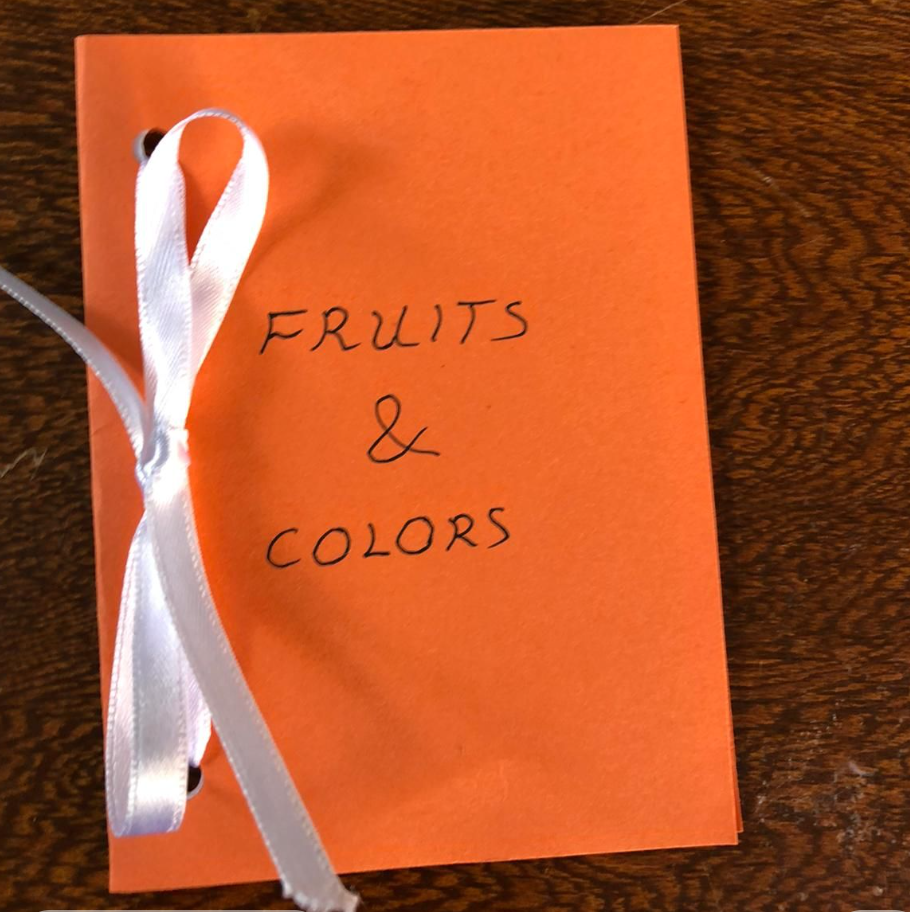 FRUITS
&
COLORS